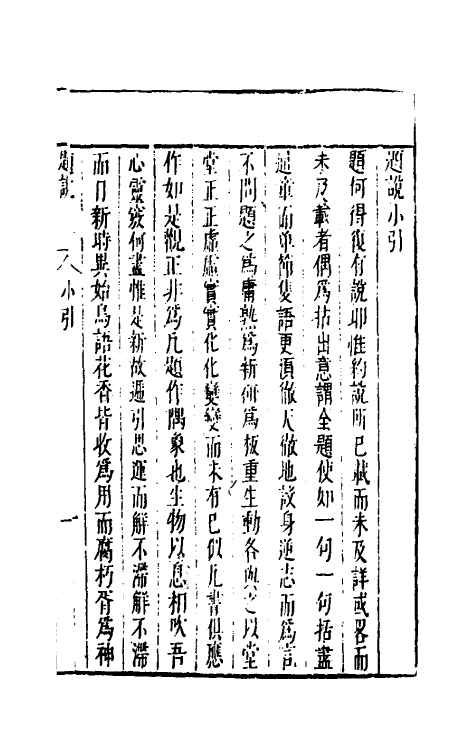 題說小引
題何得復有說耶惟約說所已載而未及詳或畧而
未及載者偶為拈出意謂全題使如一句一句括盡
通章而單節隻語更須徹天徹地設身逆志而為言
不問題之為庸熟為新何為板重生動各與之以堂
堂正正虛虛實實化化變變而未有已似凡書俱應
作如是觀正非為凡題作隅象也生物以息相吹吾
心靈竅何盡惟是新故遞引思運而解不滯解不滯
而日新時異始鳥語花香皆收為用而腐朽胥為神
題說
小引
一